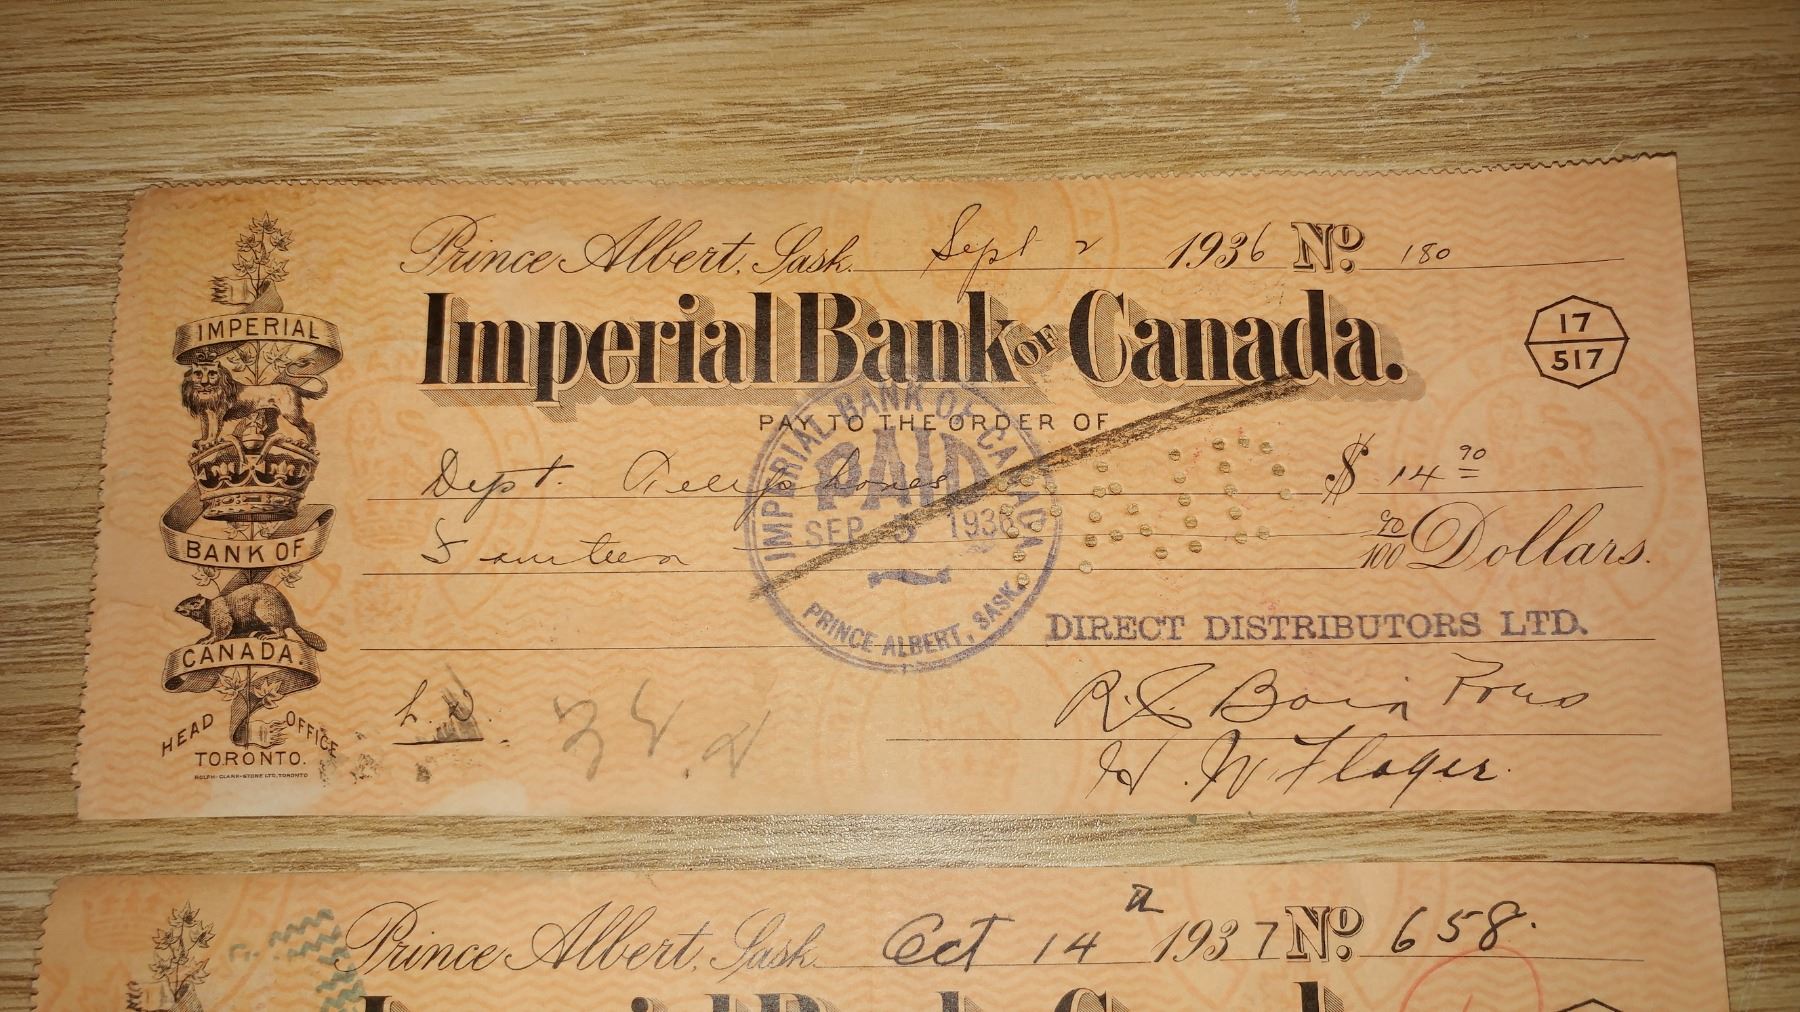 Prince Albert, Sask. Sept 2 1936 No. 180
Imperial Bank OF Canada.
17
517
PAY TO THE ORDER OF
Dept. Telephones $ 14 90
Fourteen 90/100 Dollars.
IMPERIAL BANK OF CANADA
PAID
SEP 3 1936
PRINCE ALBERT, SASK.
DIRECT DISTRIBUTORS LTD.
H. W. Flager.
IMPERIAL
BANK OF
CANADA.
HEAD OFFICE
TORONTO.
ROLPH-CLARK-STONE LTD, TORONTO
Prince Albert, Sask. Oct 14 th 1937 No. 658.